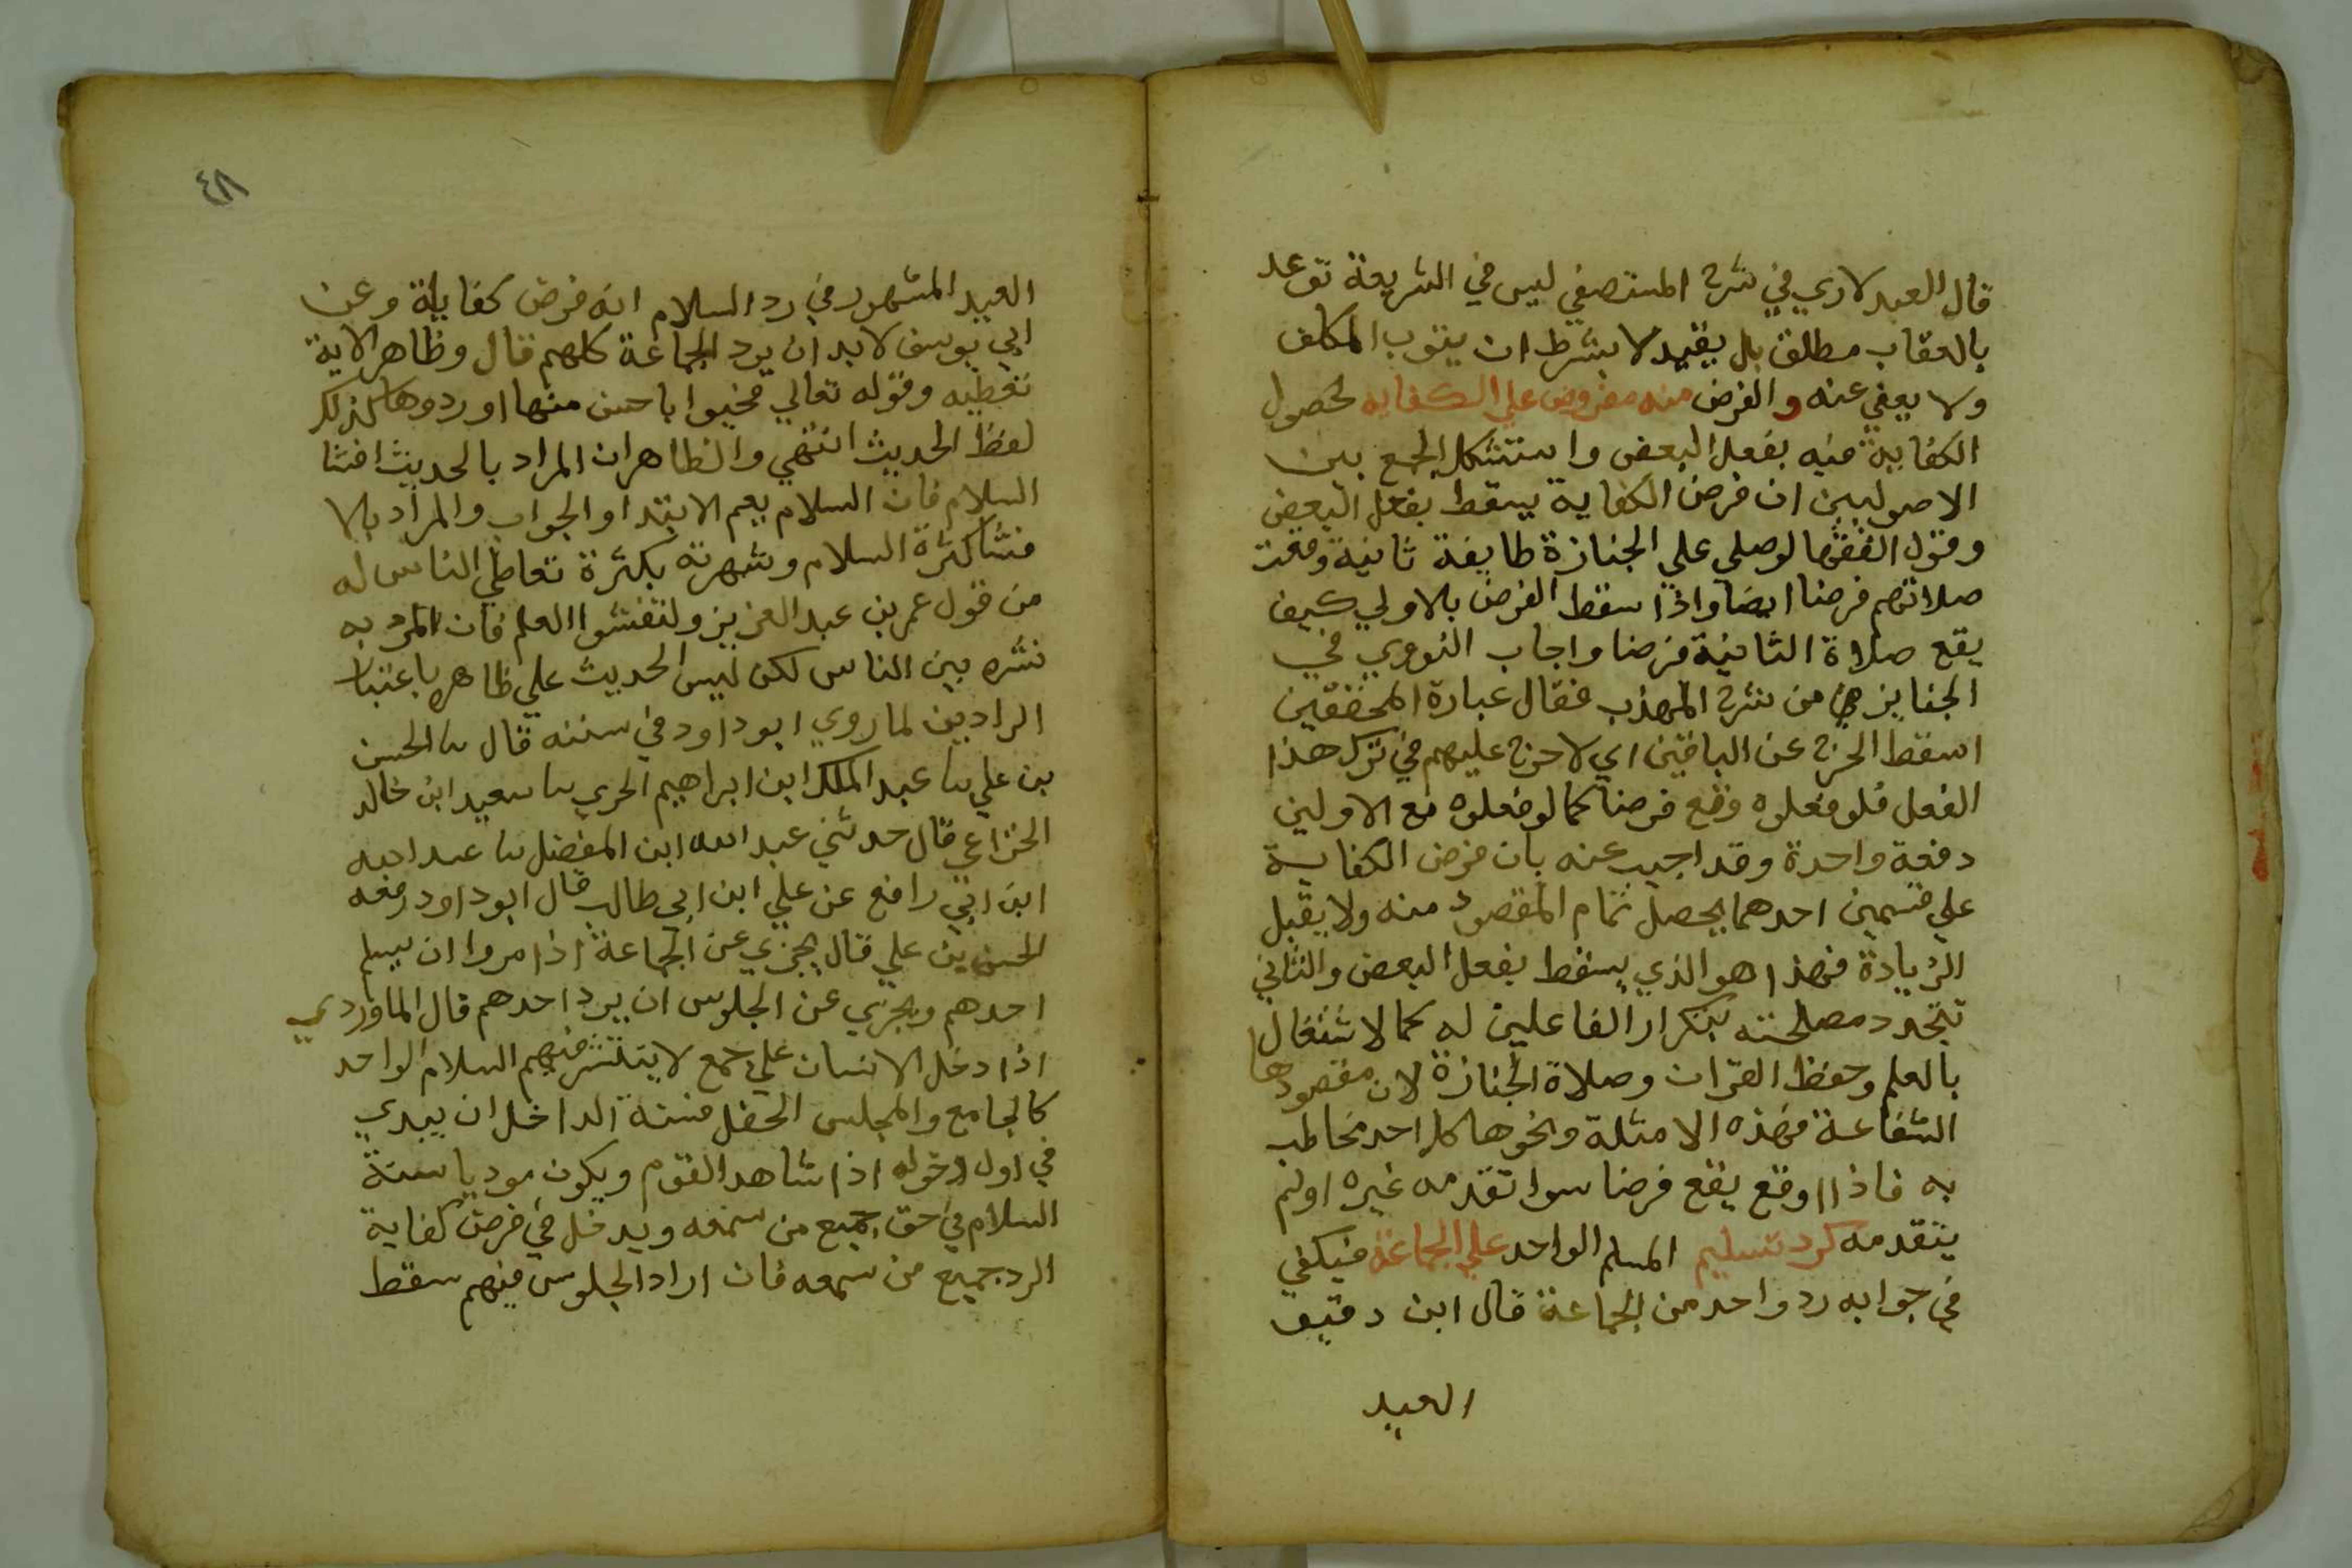 قال العبدلاري في شرح المستصفي ليس في الشريعة توعد
بالعقاب مطلق بل يقيد لا بشرط ان يتوب المكلف
ولا يعفي عنه والفرض منه مفروض علي الكفايه لحصول
الكفاية منه بفعل البعض واستشكل الجمع بين
الاصوليين ان فرض الكفاية يسقط بفعل البعض
وقول الفقها لو صلي علي الجنازة طايفة ثانية وقعت
صلاتهم فرضا ايضا واذا سقط الفرض بالاولي كيف
يقع صلاة الثانية فرضا واجاب النووي في
الجنايز من شرح المهذب فقال عبارة المحققين
اسقط الحرج عن الباقين اي لا حرج عليهم في ترك هذا
الفعل فلو فعلوه وقع فرضا كما لو فعلوه مع الاولين
دفعة واحدة وقد اجيب عنه بان فرض الكفاية
علي قسمين احدهما يحصل تمام المقصود منه ولا يقبل
الزيادة فهذا هو الذي يسقط بفعل البعض والثاني
تتجدد مصلحته بتكرار الفاعلين له كما لاشتغال
بالعلم وحفظ القران وصلاة الجنازة لان مقصودها
الشفاعة فهذه الامثلة ونحوها كل احد مخاطب
به فاذا اوقع يقع فرضا سوا تقدمه غيره اولم
يتقدمه كرد تسليم المسلم الواحد علي الجماعة فيكفي
في جوابه رد واحد من الجماعة قال ابن دقيق
العيد
٤٨
العيد المشهور في رد السلام انه فرض كفاية وعن
ابي يوسف لا بد ان يرد الجماعة كلهم قال وظاهر الاية
تعطيه وقوله تعالي فحيوا باحسن منها او ردوها كذلك
لفظ الحديث انتهي والظاهر ان المراد بالحديث افشا
السلام فان السلام يعم الابتدا والجواب والمراد بالا
فشا كثرة السلام وشهرته بكثرة تعاطي الناس له
من قول عمر بن عبد العزيز ولتفشوا العلم فان المرد به
نشره بين الناس لكن ليس الحديث علي ظاهره باعتبار
الرادين لما روي ابو داود في سننه قال ثنا الحسن
بن علي ثنا عبد الملك ابن ابراهيم الحري ثنا سعيد ابن خالد
الخزاعي قال حدثني عبد الله ابن المفضل ثنا عبد الله
ابن ابي رافع عن علي ابن ابي طالب قال ابو داود رفعه
الحسن بن علي قال يجزي عن الجماعة اذا مروا ان يسلم
احدهم ويجزي عن الجلوس ان يرد احدهم قال الماوردي
اذا دخل الانسان علي جمع لا ينتشر فيهم السلام الواحد
كالجامع والمجلس الحفل فسنة الداخل ان يبدي
في اول دخوله اذا شاهد القوم ويكون موديا سنة
السلام في حق جميع من سمعه ويدخل في فرض كفاية
الرد جميع من سمعه فان اراد الجلوس فيهم سقط